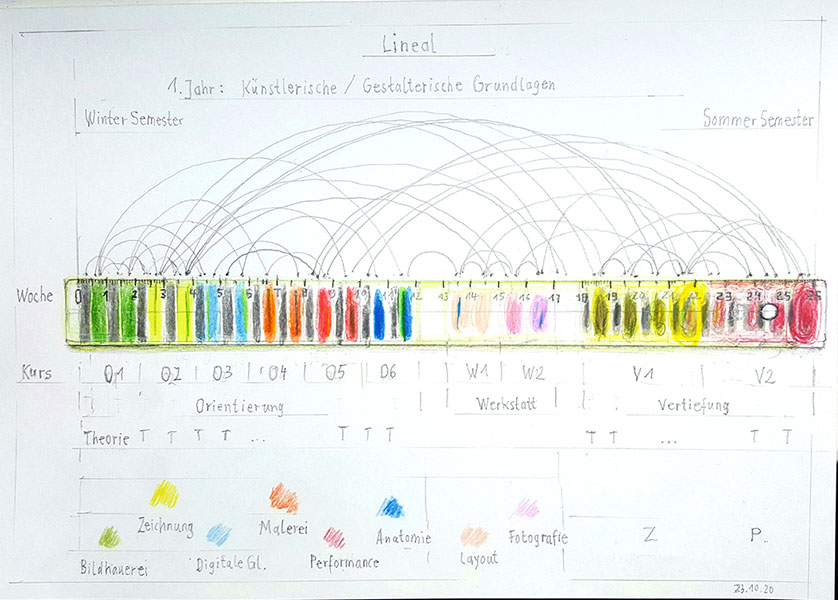 Lineal
1. Jahr: Künstlerische / Gestalterische Grundlagen
Winter Semester
Sommer Semester
Woche 0 1 2 3 4 5 6 7 8 9 10 11 12 13 14 15 16 17 18 19 20 21 22 23 24 25 26
Kurs O1 O2 O3 O4 O5 O6 W1 W2 V1 V2
Orientierung Werkstatt Vertiefung
Theorie T T T T ... T T T T T ... T T
Zeichnung Malerei Anatomie Fotografie Z P.
Bildhauerei Digitale Gl. Performance Layout
23.10.20